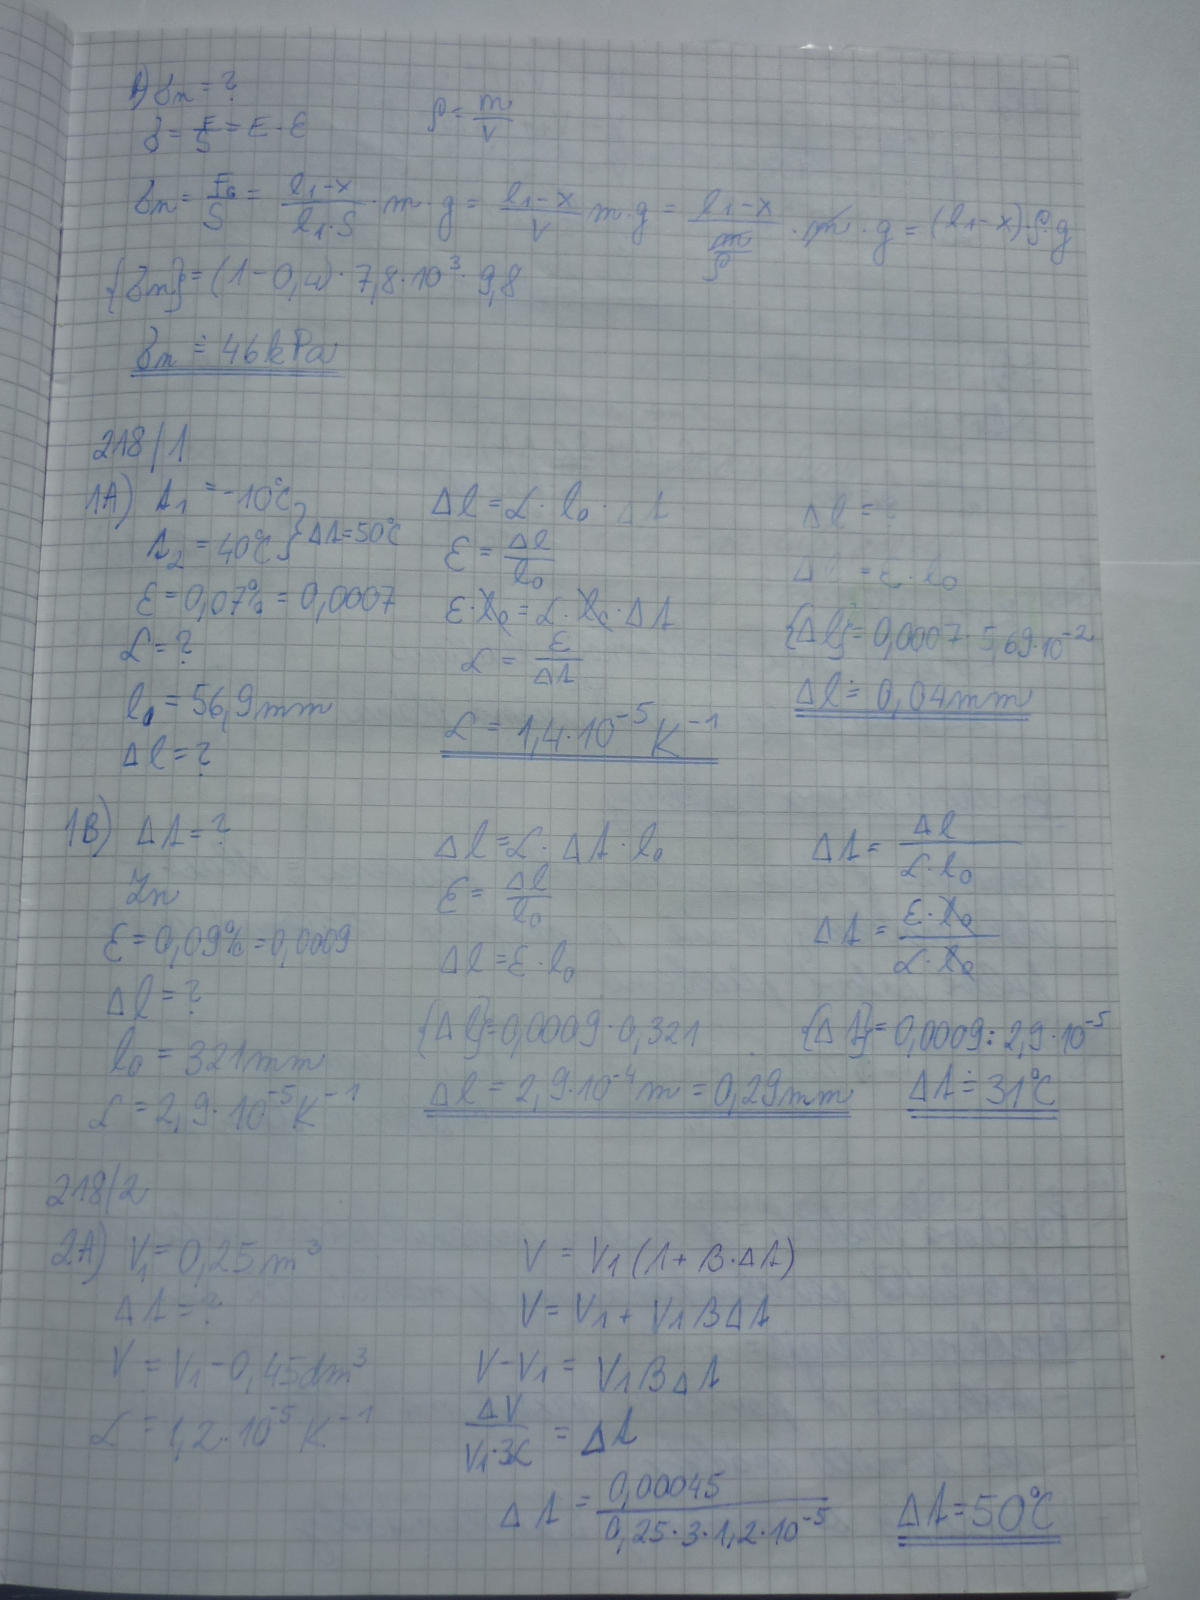 A) σn = ?
ρ = m/V
σ = F/S = E · ε
σn = FG/S = (l1-x)/(l1·S) · m · g = (l1-x)/V m·g = (l1-x)/(m/ρ) · m · g = (l1-x)·ρ·g
{σn} = (1-0,4) · 7,8·10³ · 9,8
σn ≐ 46kPa
218/1
1A) t1 = -10°C
t2 = 40°C } Δt=50°C
ε = 0,07% = 0,0007
α = ?
l0 = 56,9mm
Δl = ?
Δl = α · l0 · Δt
ε = Δl/l0
ε·l0 = α·l0·Δt
α = ε/Δt
α = 1,4·10⁻⁵K⁻¹
Δl = ?
Δl = ε·l0
{Δl} = 0,0007·5,69·10⁻²
Δl ≐ 0,04mm
1B) Δt = ?
Zn
ε = 0,09% = 0,0009
Δl = ?
l0 = 321mm
α = 2,9·10⁻⁵K⁻¹
Δl = α · Δt · l0
ε = Δl/l0
Δl = ε·l0
{Δl} = 0,0009·0,321
Δl = 2,9·10⁻⁴m = 0,29mm
Δt = Δl/(α·l0)
Δt = (ε·l0)/(α·l0)
{Δt} = 0,0009:2,9·10⁻⁵
Δt ≐ 31°C
218/2
2A) V1 = 0,25m³
Δt = ?
V = V1 - 0,45dm³
α = 1,2·10⁻⁵K⁻¹
V = V1(1+β·Δt)
V = V1 + V1βΔt
V-V1 = V1βΔt
ΔV/(V1·3α) = Δt
Δt = 0,00045/(0,25·3·1,2·10⁻⁵)
Δt = 50°C